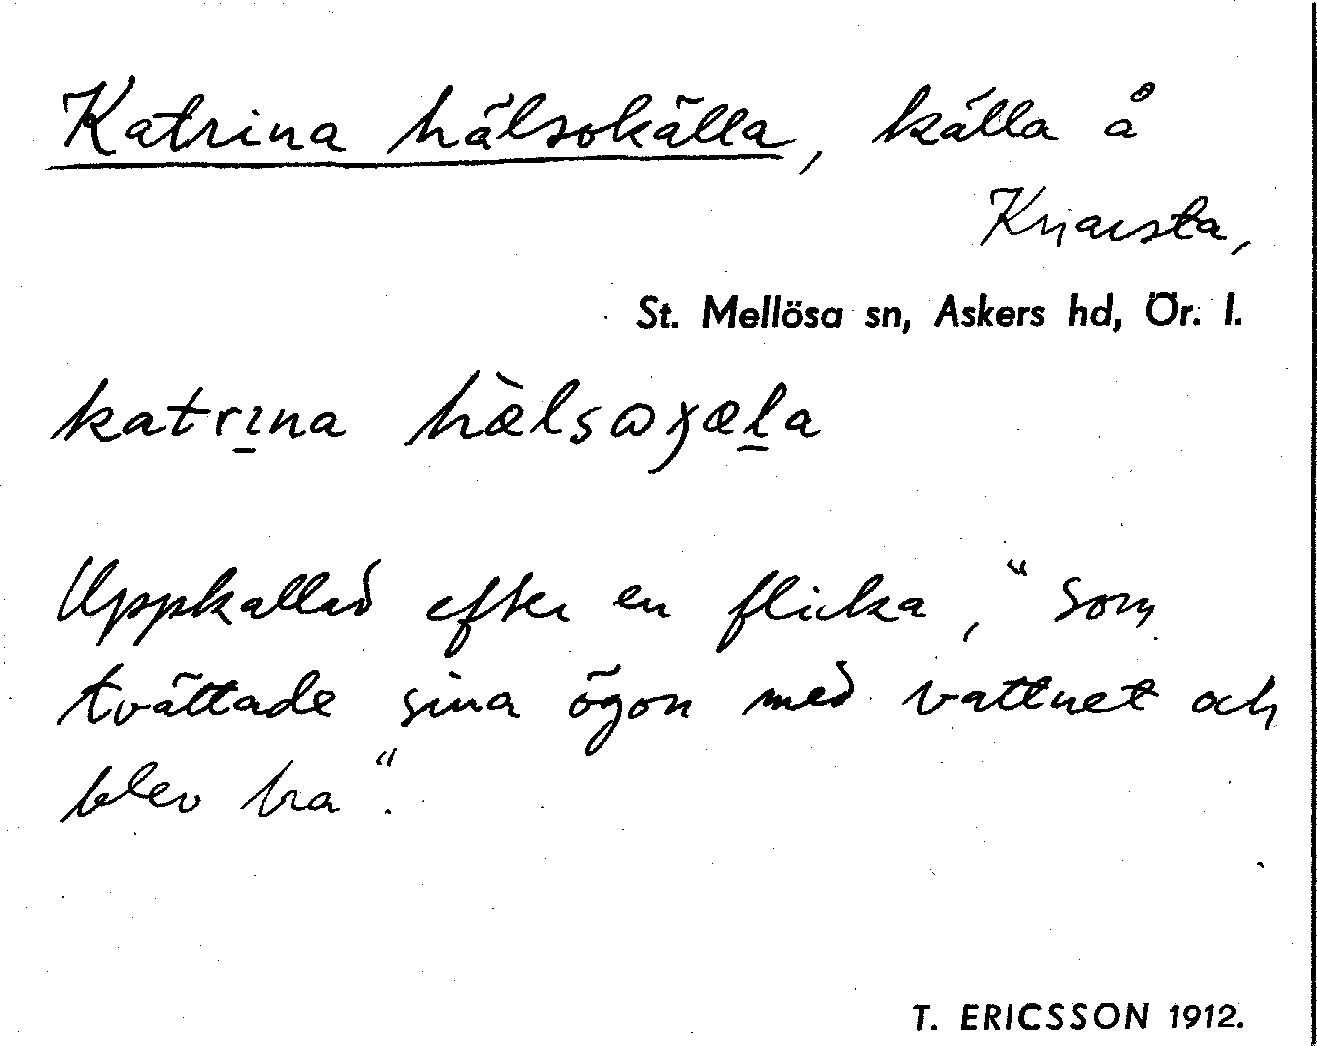 Katrina hälsokälla, källa å
Knarsta,
St. Mellösa sn, Askers hd, Ör. l.
katrina
Uppkallad efter en flicka, "som
tvättade sina ögon med vattnet och
blev bra".
T. ERICSSON 1912.